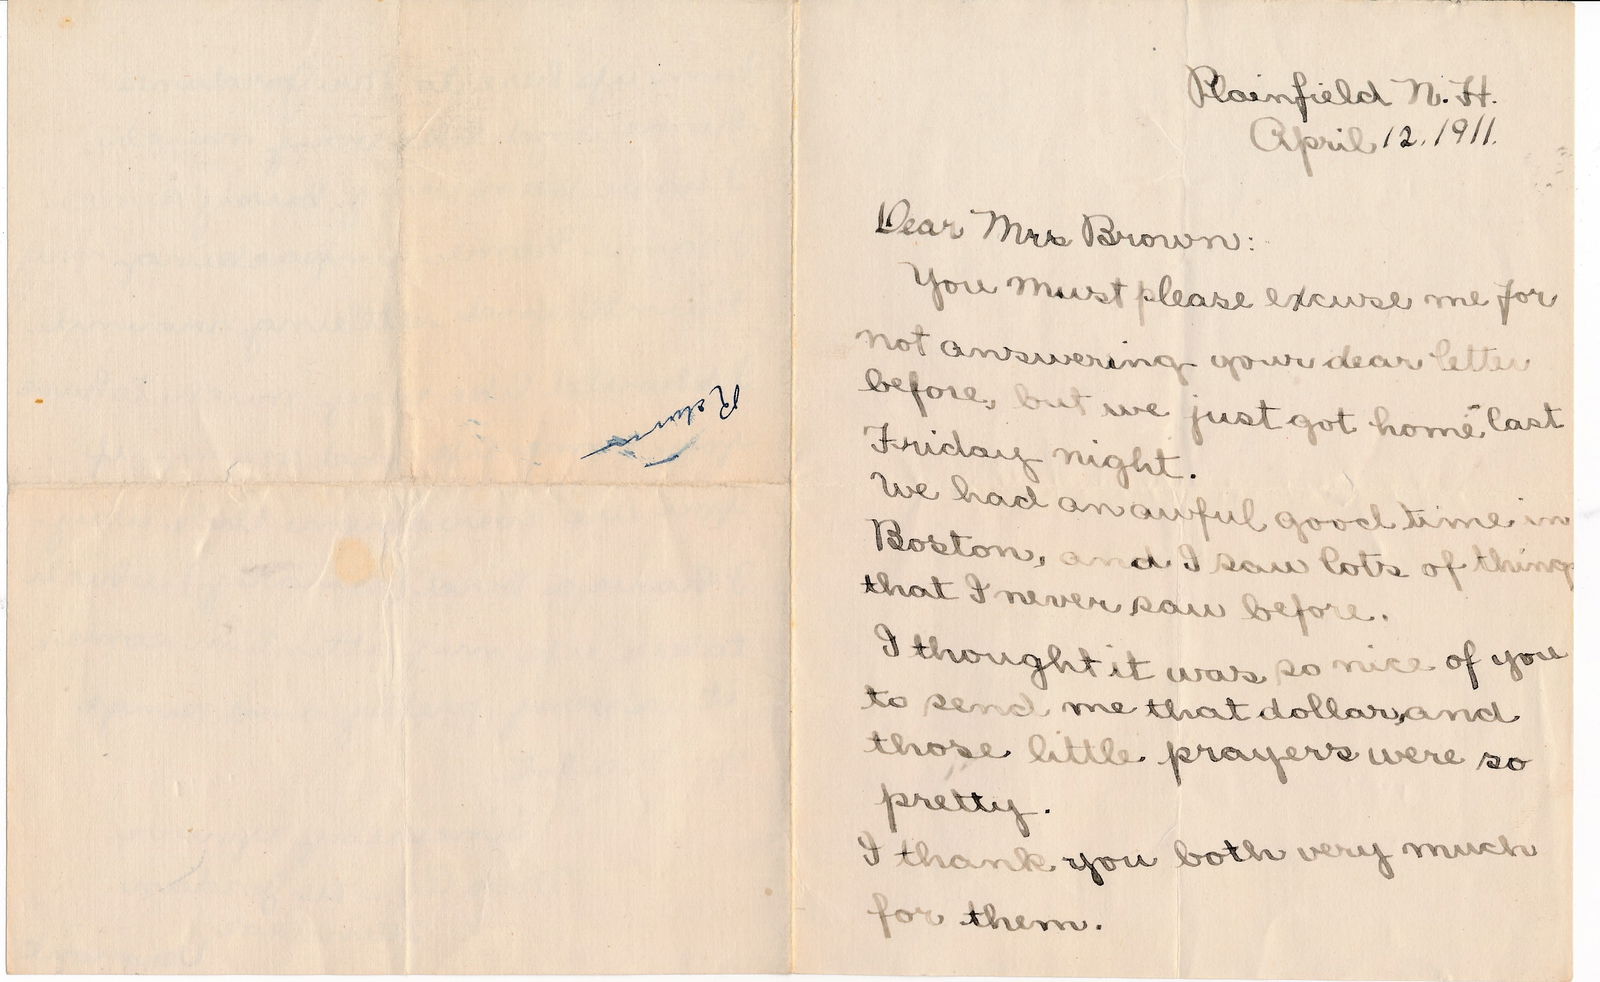 Plainfield N.H.
April 12, 1911.
Dear Mrs Brown:
You must please excuse me for
not answering your dear letter
before, but we just got home last
Friday night.
We had an awful good time in
Boston, and I saw lots of things
that I never saw before.
I thought it was so nice of you
to send me that dollar, and
those little prayers were so
pretty.
I thank you both very much
for them.